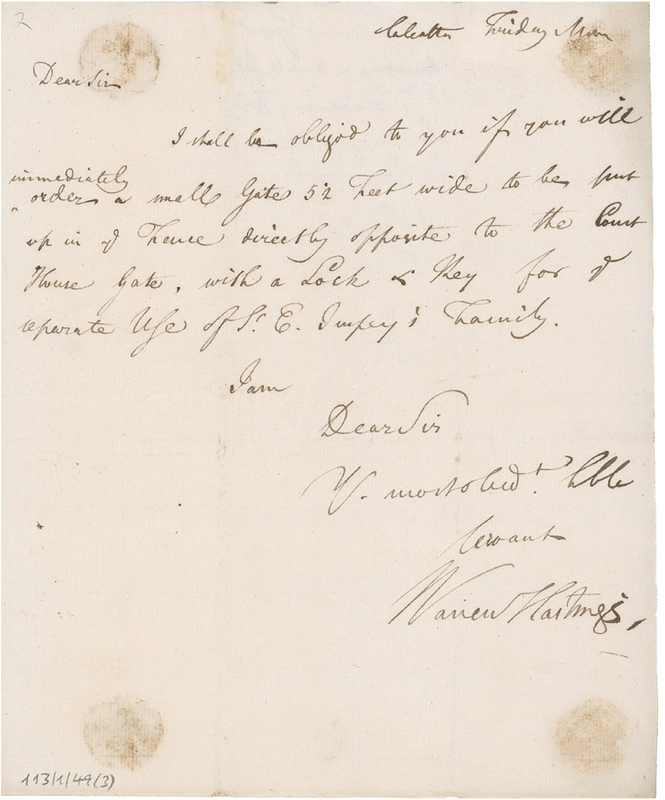 2
Calcutta Friday Morn
Dear Sir
I shall be obliged to you if you will
immediately
^ order a small Gate 5½ Feet wide to be put
up in ye Fence directly opposite to the Court
House Gate, with a Lock & Key for ye
seperate Use of Sr. E. Impey's Family.
I am
Dear Sir
Yr. most obedt. Hble
Servant
Warren Hastings,
113/1/49(3)